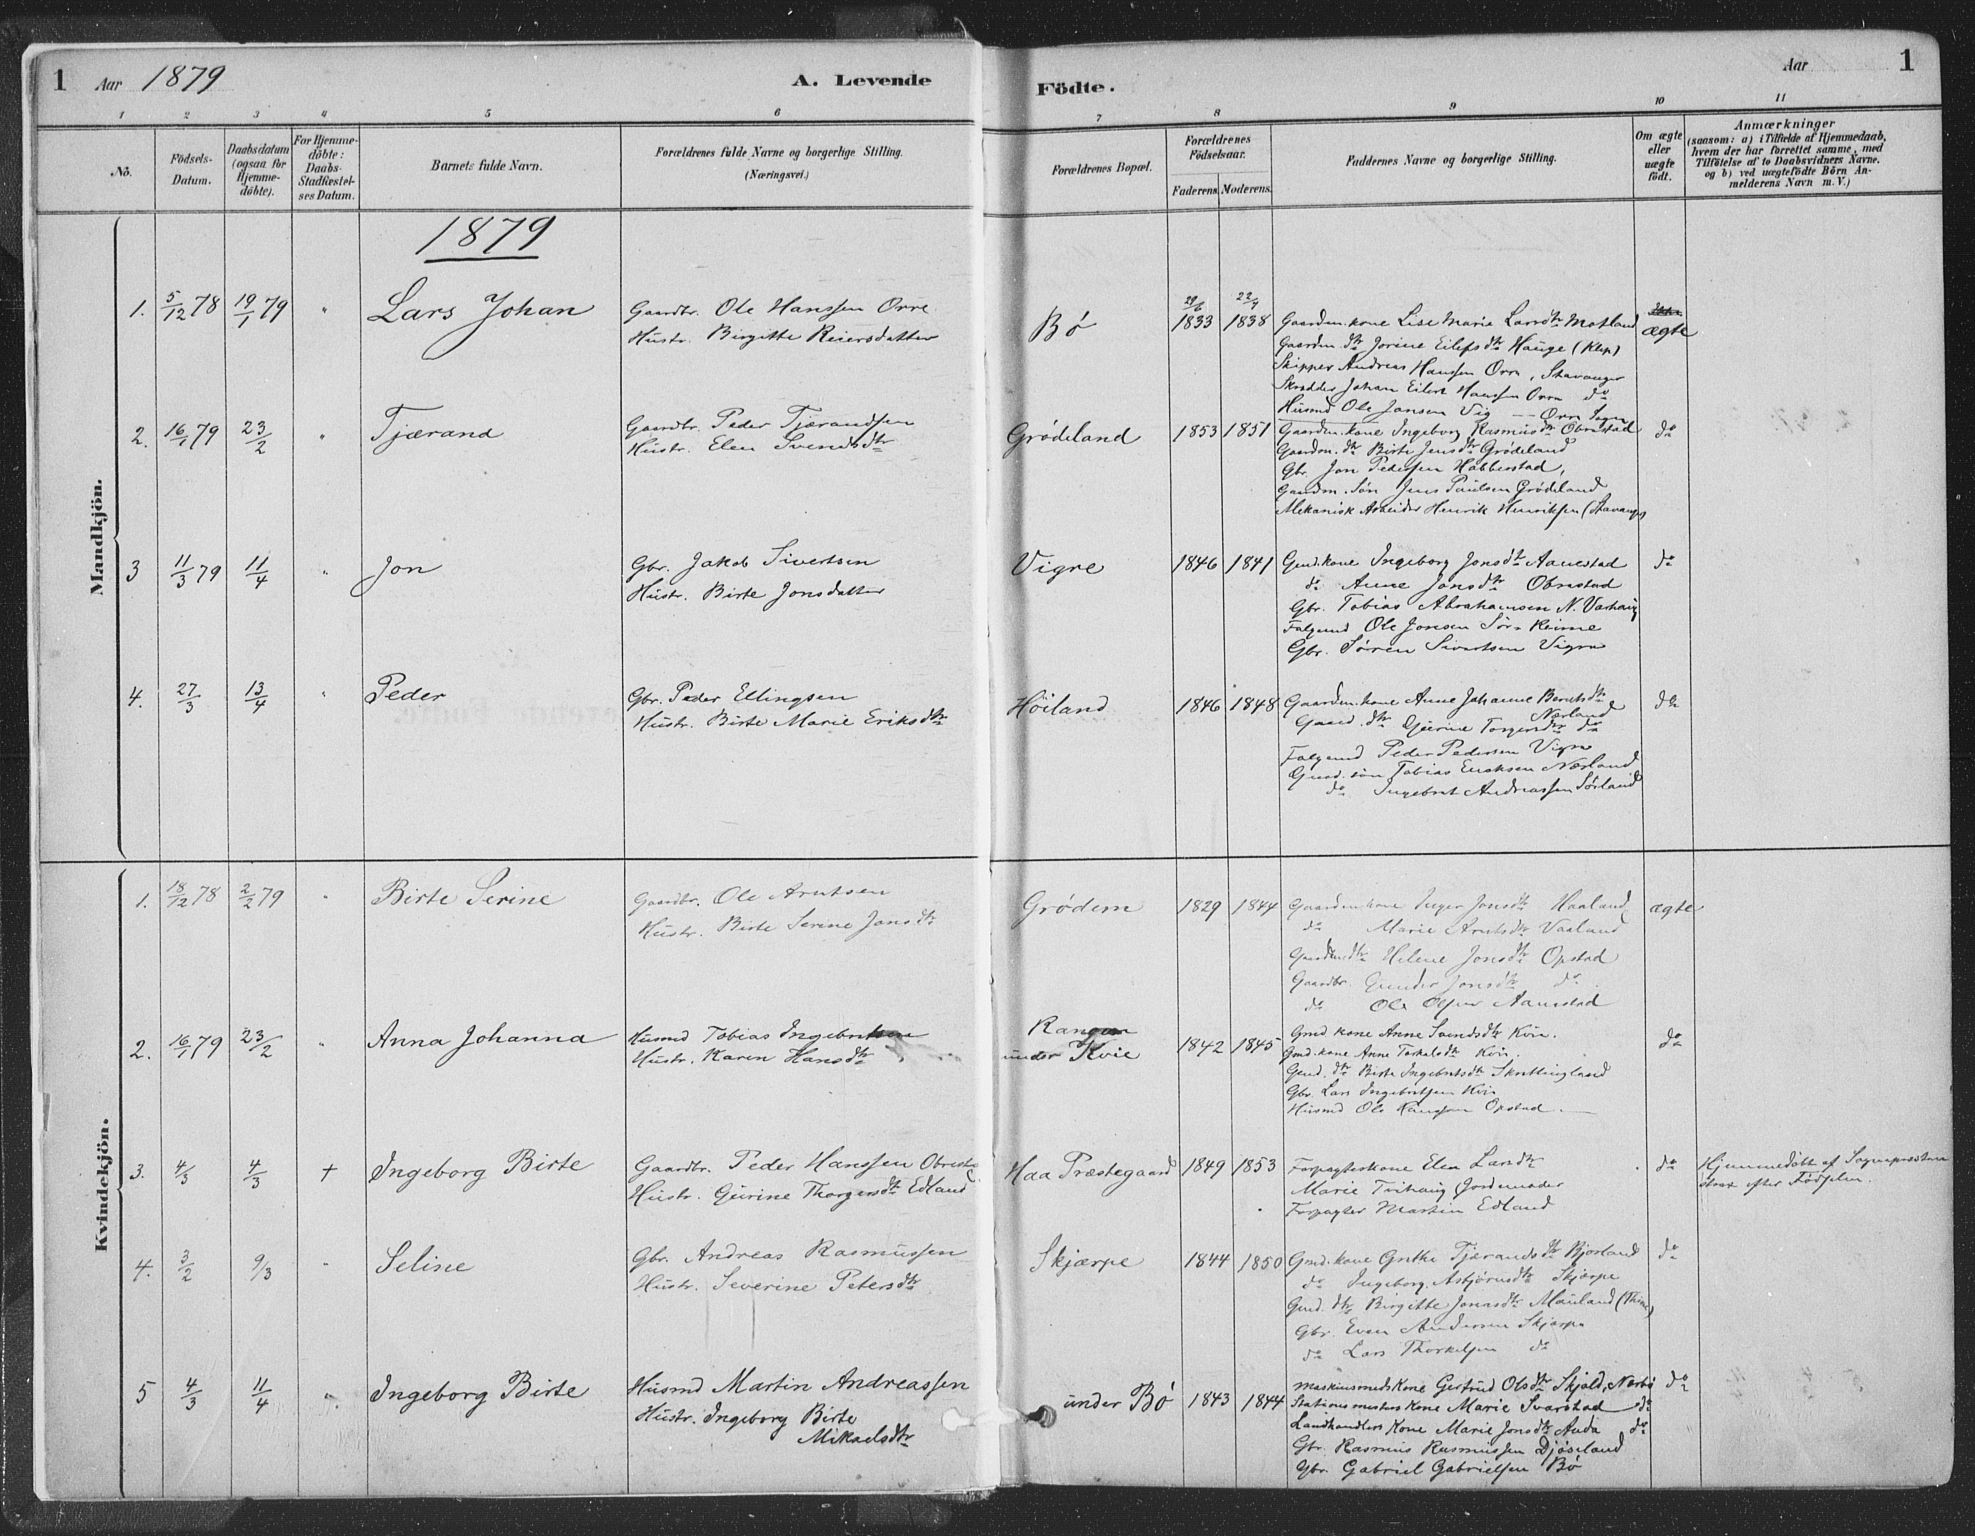 1 Aar 1879 A. Levende Födte. Aar 1
1 2 3 4 5 6 7 8 9 10 11
No.
Födsels-
Datum.
Daabsdatum
(ogsaa för
Hjemme-
döbte).
For Hjemme-
döbte:
Daabs-
Stadfæstel-
ses Datum.
Barnets fulde Navn.
Forældrenes fulde Navne og borgerlige Stilling.
(Næringsvei.)
Forældrenes Bopæl.
Forældrenes
Födselsaar.
Faderens. Moderens.
Faddernes Navne og borgerlige Stilling.
Om ægte
eller
uægte
födt.
Anmærkninger
(saasom: a) i Tilfælde af Hjemmedaab,
hvem der har forrettet samme, med
Tilföielse af to Daabsvidners Navne.
og b) ved uægtefödte Börn An-
melderens Navn m. V.)
1879
Mandkjön.
1. 5/12 78 19/1 79 " Lars Johan
Gaardbr. Ole Hanssen Orre
Hustr. Birgitte Reiersdatter
Bø
29/6 1833 22/4 1838
Gaardm. kone Lise Marie Larsdtr Motland
Gaardm. dtr Jorine Eilefsdtr Hauge (Klep)
Skipper Andreas Hansen Orre, Stavanger
Skrædder Johan Eilert Hansen Orre do
Husmd Ole Jansen Vig — Orre Sogn
ægte
2. 16/1 79 23/2 " Tjærand
Gaardbr. Peder Tjærandsen
Hustr. Elen Svendsdtr
Grødeland
1853 1851
Gaardm. kone Ingeborg Rasmusdtr Obrestad
Gaardm. dtr Birte Jensdtr Grødeland
Gbr. Jon Pedersen Habberstad,
Gaardm. Søn Jens Paulsen Grødeland
Mekanisk Arbeider Henrik Henriksen (Stavanger)
do
3 11/3 79 11/4 " Jon
Gbr. Jakob Sivertsen
Hustr. Birte Jonsdatter
Vigre
1846 1841
Gmd. kone Ingeborg Jonsdtr Aanestad
do Anne Jonsdtr Obrestad
Gbr. Tobias Abrahamsen N. Varhaug
Folgemd Ole Jonsen Sør-Reime
Gbr. Sören Sivertsen Vigre
do
4. 27/3 13/4 " Peder
Gbr. Peder Ellingsen
Hustr. Birte Marie Eriksdtr
Höiland
1846 1848
Gaardm. kone Anne Johanne Berntsdtr
Nærland
Gaard. dtr Gjerine Torgersdtr do
Folgemd Peder Pedersen Vigre
Gmd. søn Tobias Eriksen Nærland
do Ingebret Andreassen Sørland
do
Kvindekjön.
1. 18/12 78 2/2 79 " Birte Serine
Gaardbr. Ole Arntsen
Hustr. Birte Serine Jonsdtr
Grödem
1829 1844
Gaardm kone Inger Jonsdtr Haaland
do Marie Arntsdtr Vaaland
Gaardmdtr Helene Jonsdtr Opstad
Gaardbr. Gunder Jonsdtr do
do Ole Olsen Aanestad
ægte
2. 16/1 79 23/2 " Anna Johanna
Husmd Tobias Ingebretsen
Hustr. Karen Hansdtr
Rangen
under Kvie
1842 1845
Gmd kone Anne Svendsdtr Kvie.
Gmd. kone Anne Torkelsdtr Kvie.
Gmd. dtr Birte Ingebretsdtr Skretlingland
Gbr. Lars Ingebretsen Kvie
Husmd Ole Hansen Opstad.
do
3. 4/3 4/3 + Ingeborg Birte
Gaardbr. Peder Hanssen Obrestad
Hustr. Gurine Thorgersdtr Edland
Haa Præstegaard
1849 1853
Forpagterkone Elen Larsdtr
Marie Tvihaug Jordemoder
Forpagter Martin Edland
do
Hjemmedöbt af Sognepræsten
strax efter Födselen.
4. 3/2 9/3 " Seline
Gbr. Andreas Rasmussen
Hustr. Severine Petersdtr
Skjærpe
1844 1850
Gmd. kone Grethe Tjærandsdtr Bjorland
do Ingeborg Asbjørnsdtr Skjærpe
Gmd. dtr Birgitte Jonasdtr Mauland (Thime)
Gbr. Even Andersen Skjærpe
do Lars Thorkelsen do
do
5 4/3 11/4 " Ingeborg Birte
Husmd Martin Andreassen
Hustr. Ingeborg Birte
Mikaelsdtr
under Bø
1843 1844
Maskinmeds Kone Gertrud Olsdtr Skjold, Nærbø
Stationsmesters Kone Marie Svarstad do
Landhandlers Kone Marie Jonsdtr Auda do
Gbr. Rasmus Rasmussen Djøseland
Gbr. Gabriel Gabrielsen Bø
do